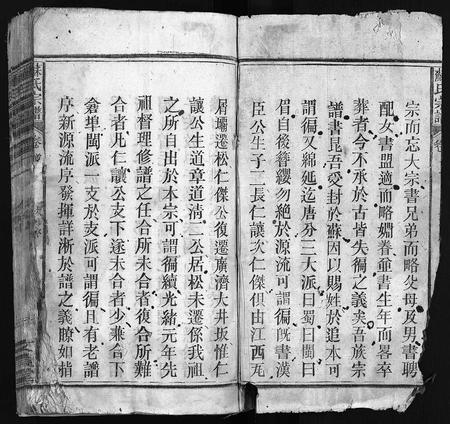 宗而忘大宗書兄弟而略父母及男書聘
配女書盟適而略婣眷童書生年而畧卒
葬者今不承於古皆失徧之義矣吾族宗
譜書昆吾受封於蘇因以賜姓於追本可
謂徧又綿延迄唐分三大派曰蜀曰閩曰
眉自後簪纓勿絶於源流可謂徧旣書漢
臣公生子二長仁讓次仁傑俱由江西瓦
屑壩遷松仁傑公復遷廣濟大井坂惟仁
讓公生道章道淸二公居松未遷係我祖
之所自出於本宗可謂徧續光緒元年先
祖督理修譜之任合所未合者復合所難
合者凡仁讓公支下遂未合者少兼合下
倉埠閩派一支於支派可謂徧且有老譜
序新源流序發揮詳淅於譜之義瞭如指
蘇氏宗譜